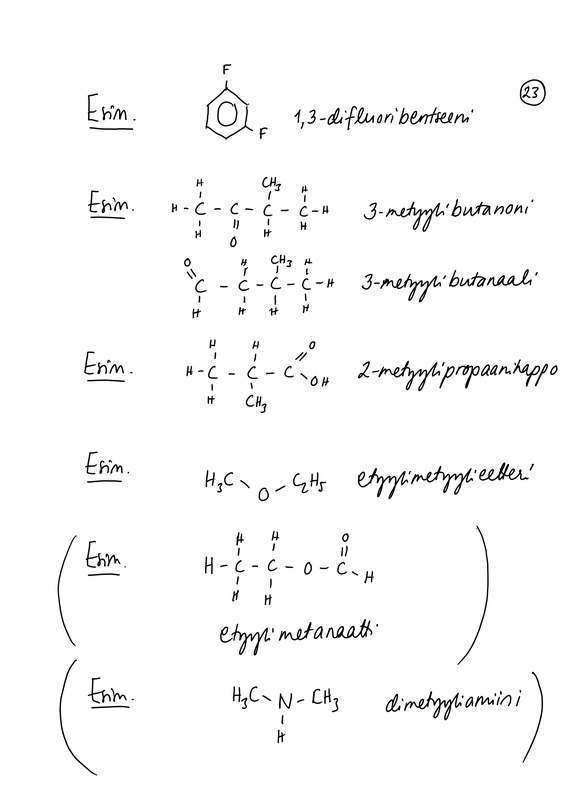 F
23
Esim. F 1,3-difluoribentseeni
H CH3 H
Esim. H - C - C - C - C - H 3-metyylibutanoni
H O H H
O H CH3 H
C - C - C - C - H 3-metyylibutanaali
H H H H
H H O
Esim. H - C - C - C OH 2-metyylipropaanihappo
H CH3
Esim. H3C O C2H5 etyylimetyylieetteri
H H O
Esim. H - C - C - O - C H
H H
etyylimetanaatti
Esim. H3C N - CH3 dimetyyliamiini
H